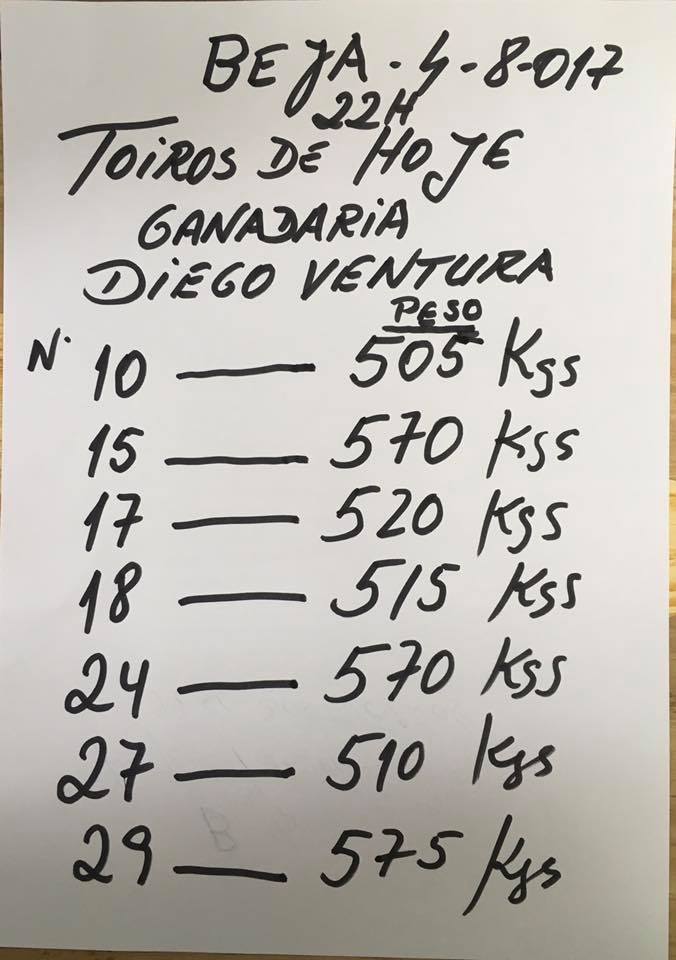 BEJA - 4 - 8 - 017
22H
TOIROS DE HOJE
GANADARIA
DIEGO VENTURA
PESO
N. 10 — 505 Kgs
15 — 570 Kgs
17 — 520 Kgs
18 — 515 Kgs
24 — 570 Kgs
27 — 510 Kgs
29 — 575 Kgs